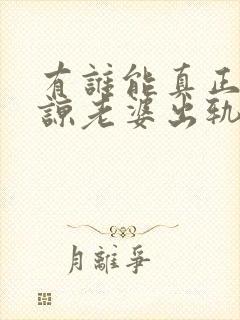 有誰能真正
諒老婆出軌
月離爭